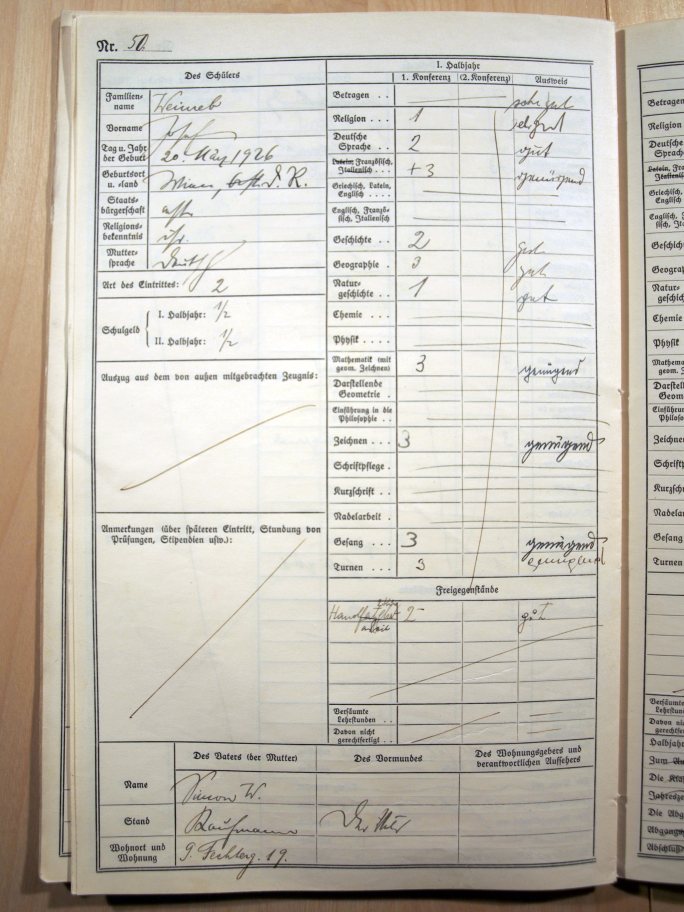 Nr. 50.
Des Schülers
Familien-
name
Weinreb
Vorname
Josef
Tag u. Jahr
der Geburt
20. März 1926
Geburtsort
u. -land
Wien, D. R.
Staats-
bürgerschaft
Religions-
bekenntnis
Mutter-
sprache
Deutsch
Art des Eintrittes: 2
Schulgeld
I. Halbjahr: 1/2
II. Halbjahr: 1/2
Auszug aus dem von außen mitgebrachten Zeugnis:
Anmerkungen (über späteren Eintritt, Stundung von
Prüfungen, Stipendien usw.):
I. Halbjahr
1. Konferenz (2. Konferenz) Ausweis
Betragen . . sehr gut
Religion . . 1 sehr gut
Deutsche
Sprache . . 2 gut
Latein, Französisch,
Italienisch . . . +3 genügend
Griechisch, Latein,
Englisch . . . .
Englisch, Franzö-
sisch, Italienisch
Geschichte . . 2 gut
Geographie . 3 gut
Natur-
geschichte . . 1 gut
Chemie . . .
Physik . . . .
Mathematik (mit
geom. Zeichnen) 3 genügend
Darstellende
Geometrie .
Einführung in die
Philosophie . .
Zeichnen . . . 3 genügend
Schriftpflege .
Kurzschrift . .
Nadelarbeit .
Gesang . . . 3 genügend
Turnen . . . 3 genügend
Freigegenstände
2- gut
Versäumte
Lehrstunden . .
Davon nicht
gerechtfertigt . .
Des Vaters (der Mutter) Des Vormundes Des Wohnungsgebers und
verantwortlichen Aufsehers
Name Simon W.
Stand Kaufmann Der Vater
Wohnort und
Wohnung
9. Fechterg. 19.
Betragen
Religion
Deutsche
Sprache
Latein, Fran
Italienisch
Griechisch,
Englisch
Englisch, F
sisch, Ital
Geschichte
Geograp
Natur-
geschich
Chemie
Physik
Mathema
geom. Ze
Darstelle
Geome
Einführu
Philosop
Zeichne
Schriftpf
Kurzsch
Nadelar
Gesang
Turnen
Versäum
Lehrstu
Davon ni
gerecht
Halbjahr
Zum
Die Kla
Jahresze
Die Abg
Abgangs
Abschluß